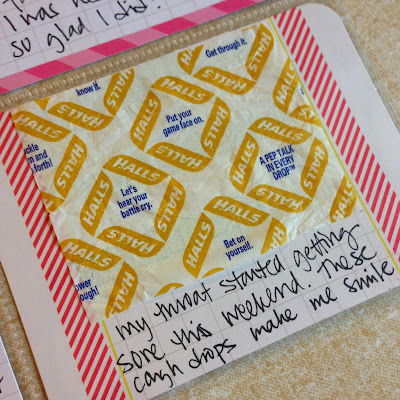 I was
so glad I did!
know it.
Get through it.
HALLS
HALLS
HALLS
HALLS
Put your
game face on.
HALLS
HALLS
HALLS
A PEP TALK
IN EVERY
DROP™
HALLS
and
forth!
HALLS
HALLS
Let's
hear your
battle cry.
HALLS
HALLS
HALLS
Bet on
yourself.
HALLS
HALLS
my throat started getting
sore this weekend. These
cough drops make me smile